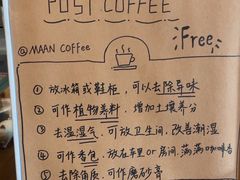 POST COFFEE
@ MAAN COFFEE
Free
① 放冰箱或鞋柜，可以去除异味
② 可作植物养料，增加土壤养分
③ 去湿湿气，可放卫生间，改善潮湿
④ 可作香包，放在车里or房间，满满咖啡香
⑤ 去除角质，可作磨砂膏